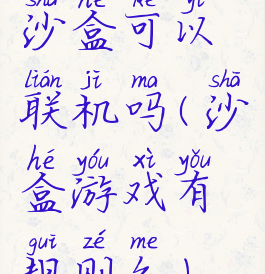 shā hé kě yǐ
沙盒可以
lián jī ma shā
联机吗(沙
hé yóu xì yǒu
盒游戏有
guī zé me
规则么)